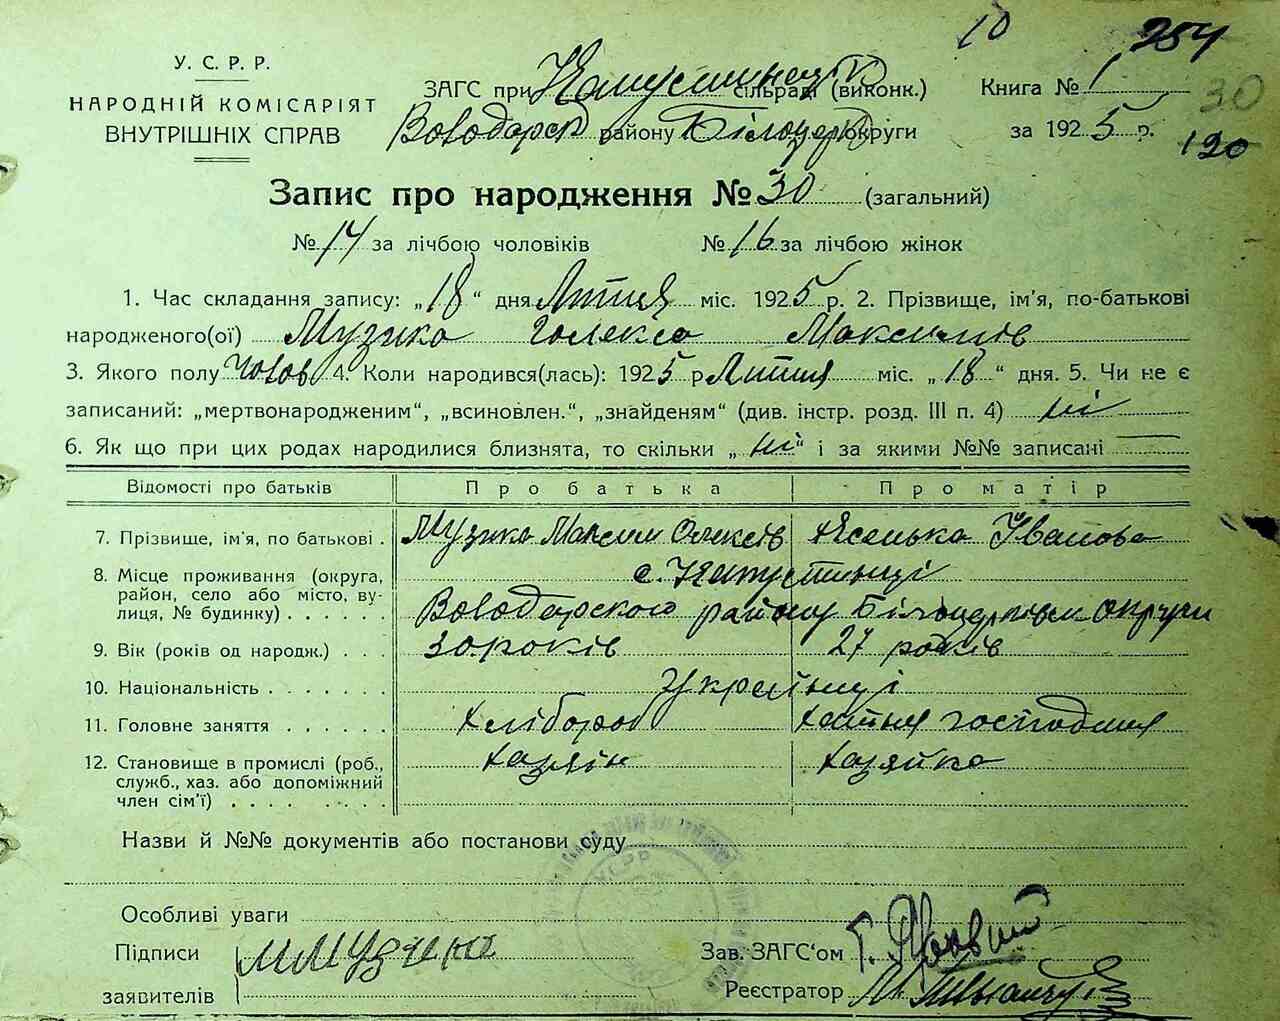 10 254
У. С. Р. Р.
НАРОДНІЙ КОМІСАРІЯТ
ВНУТРІШНІХ СПРАВ
ЗАГС при Капустинецкій сільраді (виконк.) Книга № 1
30
Володарск району Білоцерк округи за 1925 р.
120
Запис про народження № 30 (загальний)
№ 14 за лічбою чоловіків № 16 за лічбою жінок
1. Час складання запису: „18“ дня Лютня міс. 1925 р. 2. Прізвище, ім'я, по-батькові
народженого(ої) Музика Голекса Максимів
3. Якого полу Чолов 4. Коли народився(лась): 1925 р Лютня міс. „18“ дня. 5. Чи не є
записаний: „мертвонародженим“, „всиновлен.“, „знайденям“ (див. інстр. розд. III п. 4) ні
6. Як що при цих родах народилися близнята, то скільки „ні“ і за якими №№ записані —
Відомості про батьків Про батька Про матір
7. Прізвище, ім'я, по батькові . Музика Максим Олексів Ксенька Іванова
8. Місце проживання (округа, с. Капустинці
район, село або місто, ву-
лиця, № будинку) . . . . . . Володарского району Білоцерківськ округи
9. Вік (років од народж.) . . . 30 років 27 років
10. Національність . . . . . . . українці
11. Головне заняття . . . . . . Хлібороб Хатня господиня
12. Становище в промислі (роб., хазяїн хазяйка
служб., хаз. або допоміжний
член сім'ї) . . . . . . . .
Назви й №№ документів або постанови суду
Особливі уваги
Підписи ММузика Зав. ЗАГС'ом Г.
заявителів Реєстратор М.